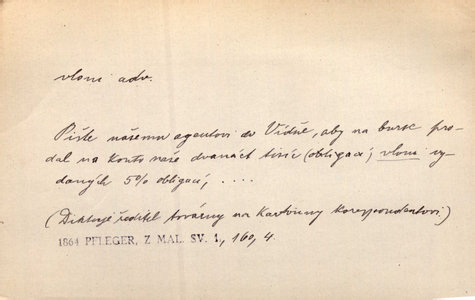 vloni adv.
Pište našemu agentovi do Vídně, aby na burse pro-
dal na konto naše dvanáct tisíc (obligací, vloni vy-
daných 5% obligací, ....
(Diktuje ředitel továrny na kartouny korespondentovi)
1864 PFLEGER, Z MAL. SV. 1., 160, 4.